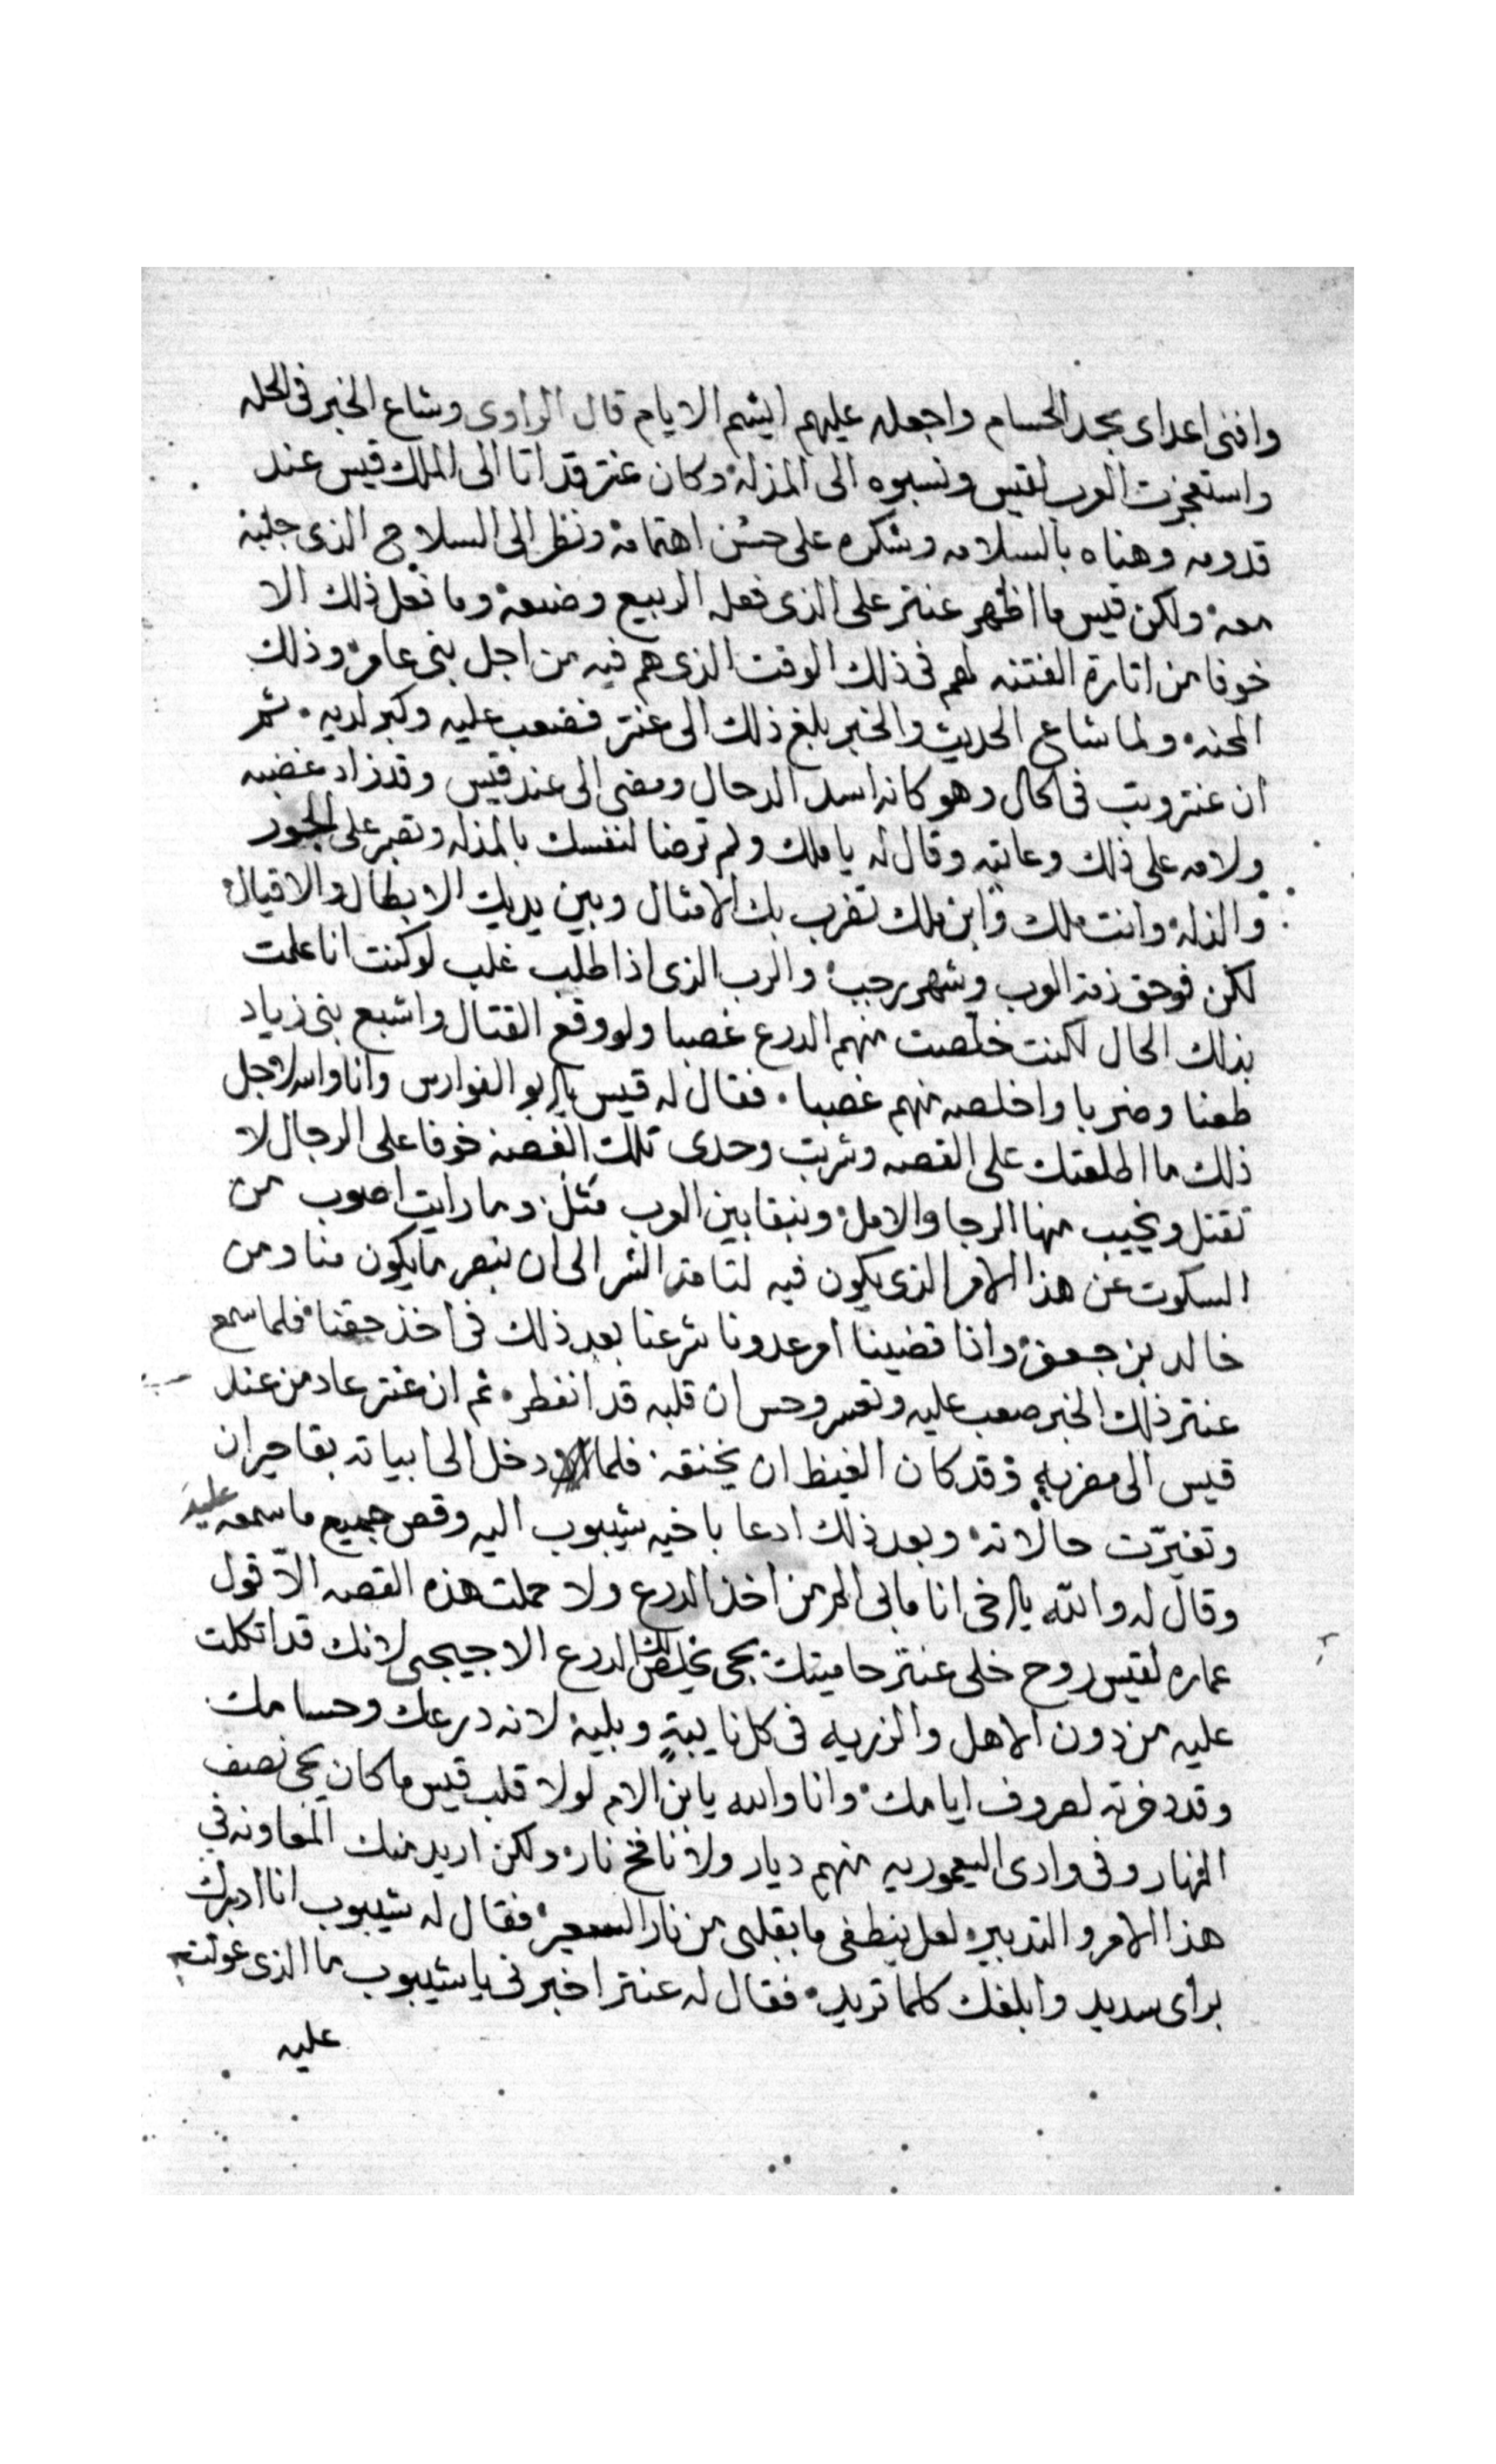 وافنى اعداى بحد الحسام واجعله عليهم ايشم الايام قال الراوى وشاع الخبر فى الحله
واستعجزت العرب لقيس ونسبوه الى المذله وكان عنتر قد اتا الى الملك قيس عند
قدومه وهناه بالسلامه وشكره على حسن اهتمامه ونظر الى السلاح الذى جلبه
معه ولكن قيس ما اظهر عنتر على الذى فعله الربيع وضيعه وما فعل ذلك الا
خوفا من اثارة الفتنه لهم فى ذلك الوقت الذى هم فيه من اجل بنى عامر وذلك
المحنه ولما شاع الحديث والخبر بلغ ذلك الى عنتر فصعب عليه وكبر لديه ثم
ان عنتر وثب فى الحال وهو كانه اسد الدحال ومضى الى عند قيس وقد زاد غضبه
ولامه على ذلك وعاتبه وقال له يا ملك ولم ترضا لنفسك بالمذله وتصبر على الجور
والذله وانت ملك وابن ملك تضرب بك الامثال وبين يديك الابطال والاقيال
لكن فوحق ذمة العرب وشهر رجب والرب الذى اذا طلب غلب لو كنت انا علمت
بذلك الحال لكنت خلصت منهم الدرع غصبا ولو وقع القتال واشبع بنى زياد
طعنا وضربا واخلصه منهم غصبا فقال له قيس يا ابو الفوارس وانا والله لاجل
ذلك ما اطلعتك على القصه وشربت وحدى تلك الغصه خوفا على الرجال لا
تقتل ويخيب منها الرجا والامل ونبقا بين العرب مثل وما رايت اصوب من
السكوت عن هذا الامر الذى يكون فيه لنا مدة الشر الى ان نبصر ما يكون منا ومن
خالد بن جعفر واذا قضينا امر عدونا شرعنا بعد ذلك فى اخذ حقنا فلما سمع
عنتر ذلك الخبر صعب عليه وتعسر وحس ان قلبه قد انفطر ثم ان عنتر عاد من عند
قيس الى مضربه وقد كان الغيظ ان يخنقه فلما دخل الى ابياته بقا حيران
وتغيرت حالاته وبعد ذلك ادعا باخيه شيبوب اليه وقص جميع ما سمعه عليه
وقال له والله يا اخى انا مابى المر من اخذ الدرع ولا حملت هذه القصه الا قول
عماره لقيس روح خلى عنتر حاميتك يجى يخلص لك الدرع الا جيجى لانك قد اتكلت
عليه من دون الاهل والذريه فى كل نايبةٍ وبليه لانه درعك وحسامك
وقد دخرته لصروف ايامك وانا والله يا بن الام لولا قلب قيس ما كان يجى نصف
النهار وفى وادى اليعموريه منهم ديار ولا نافخ نار ولكن اريد منك المعاونه فى
هذا الامر والتدبير لعل ينطفى ما بقلبى من نار السعير فقال له شيبوب انا ادبرك
براى سديد وابلغك كلما تريد فقال له عنتر اخبرنى يا شيبوب ما الذى عولت
عليه